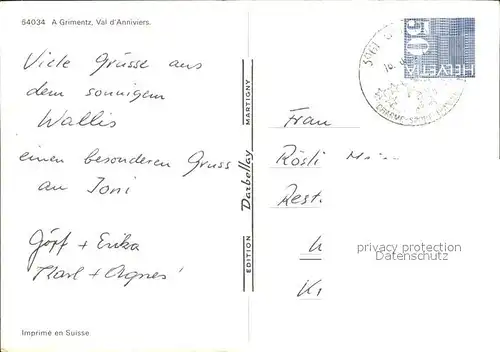 64034 A Grimentz, Val d'Anniviers.
Viele Grüsse aus
dem sonnigem
Wallis
einen besonderen Gruss
an Toni
Görf + Erika
Karl + Agnes
Imprimé en Suisse.
EDITION Darbellay MARTIGNY
3961
50
HELVETIA
Frau
Rösli
Rest.
privacy protection
Datenschutz